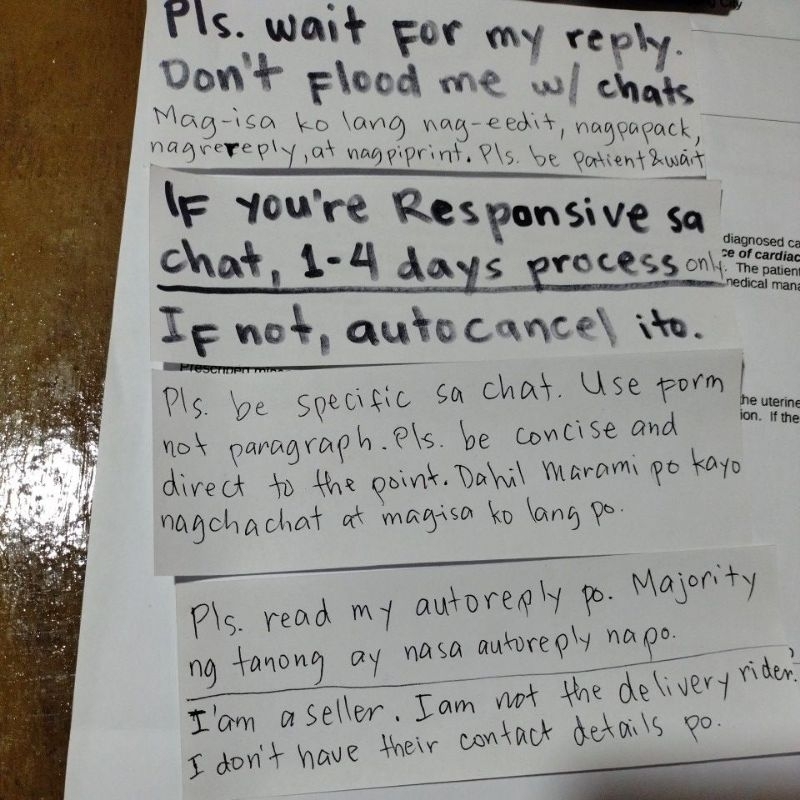 Pls. wait for my reply.
Don't Flood me w/ chats
Mag-isa ko lang nag-eedit, nagpapack,
nagrereply, at nagpiprint. Pls. be patient & wait
IF you're Responsive sa
chat, 1-4 days process only.
IF not, autocancel ito.
Pls. be specific sa chat. Use form
not paragraph. Pls. be concise and
direct to the point. Dahil marami po kayo
nagchachat at magisa ko lang po.
Pls. read my autoreply po. Majority
ng tanong ay nasa autoreply na po.
I'am a seller. I am not the delivery rider.
I don't have their contact details po.
diagnosed ca
ce of cardiac
. The patient
medical mana
he uterine
ion. If the